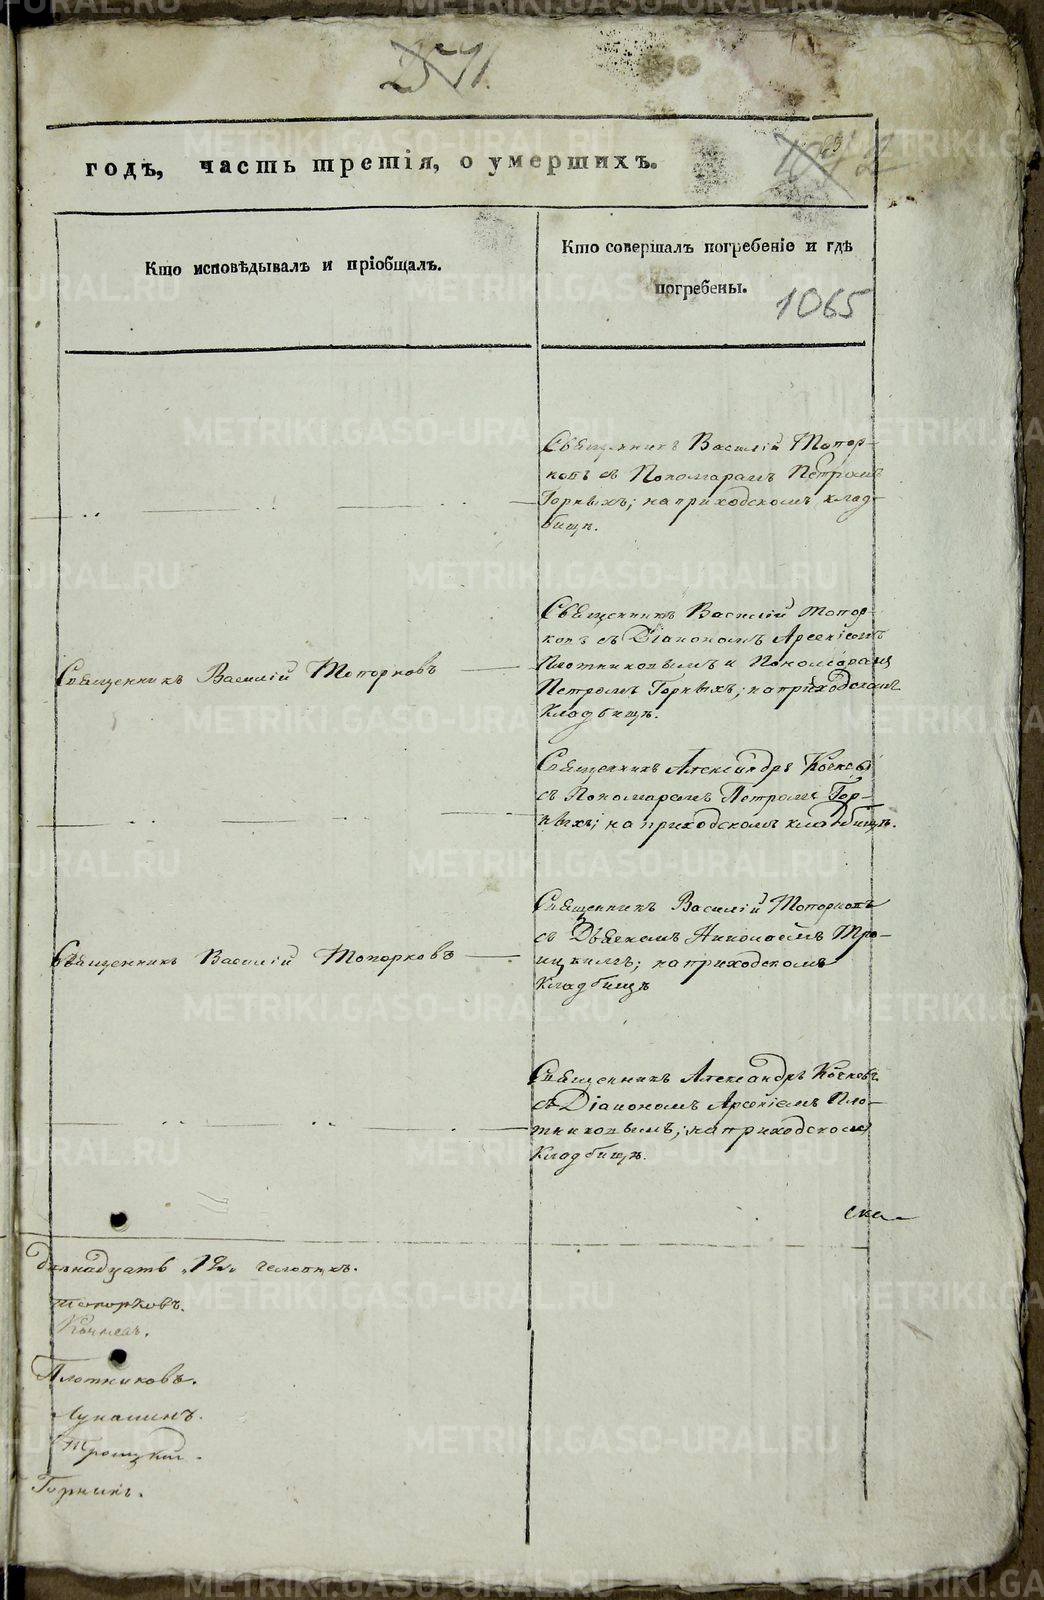 годъ, часть третія, о умершихъ.
Кто исповѣдывалъ и пріобщалъ.
Кто совершалъ погребеніе и гдѣ
погребены.
1065
Священникъ Василій Топор-
ковъ съ Пономаремъ Петромъ
Горныхъ; на приходскомъ клад-
бищѣ.
Священникъ Василій Топорковъ
Священникъ Василій Топор-
ковъ съ Діакономъ Арсеніемъ
Плотниковымъ и Пономаремъ
Петромъ Горныхъ; на приходскомъ
кладбищѣ.
Священникъ Александръ Кочневъ
съ Пономаремъ Петромъ Гор-
ныхъ; на приходскомъ кладбищѣ.
Священникъ Василій Топорковъ
Священникъ Василій Топорковъ
съ Дьячкомъ Николаемъ Тро-
ицкимъ; на приходскомъ
кладбищѣ
Священникъ Александръ Кочневъ
съ Діакономъ Арсеніемъ Пло-
тниковымъ; на приходскомъ
кладбищѣ.
двенадцать "12" человѣкъ.
Топорковъ.
Кочневъ.
Плотниковъ.
Троицкій.
METRIKI.GASO-URAL.RU